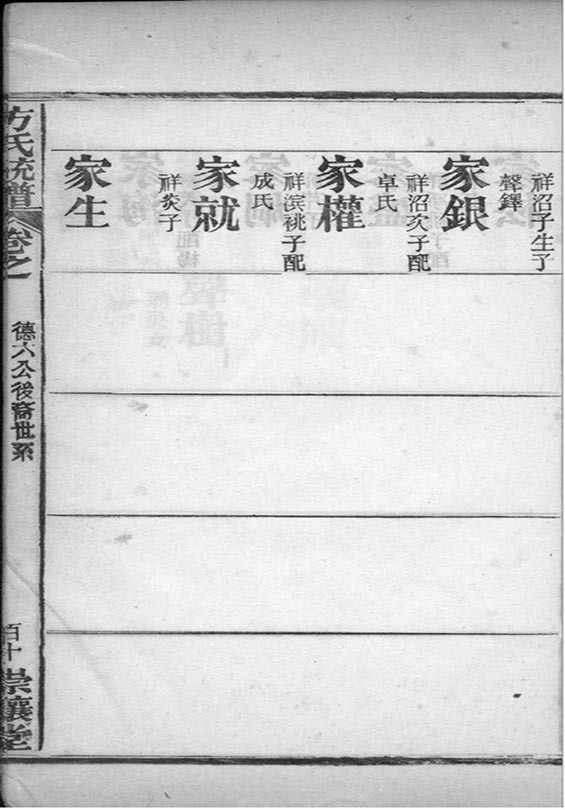 家銀
祥沼子生子
聲鐸
家權
祥沼次子配
卓氏
家就
祥滨祧子配
成氏
家生
祥炎子
方氏統譜
卷之一
德六公後裔世系
百十
崇讓堂